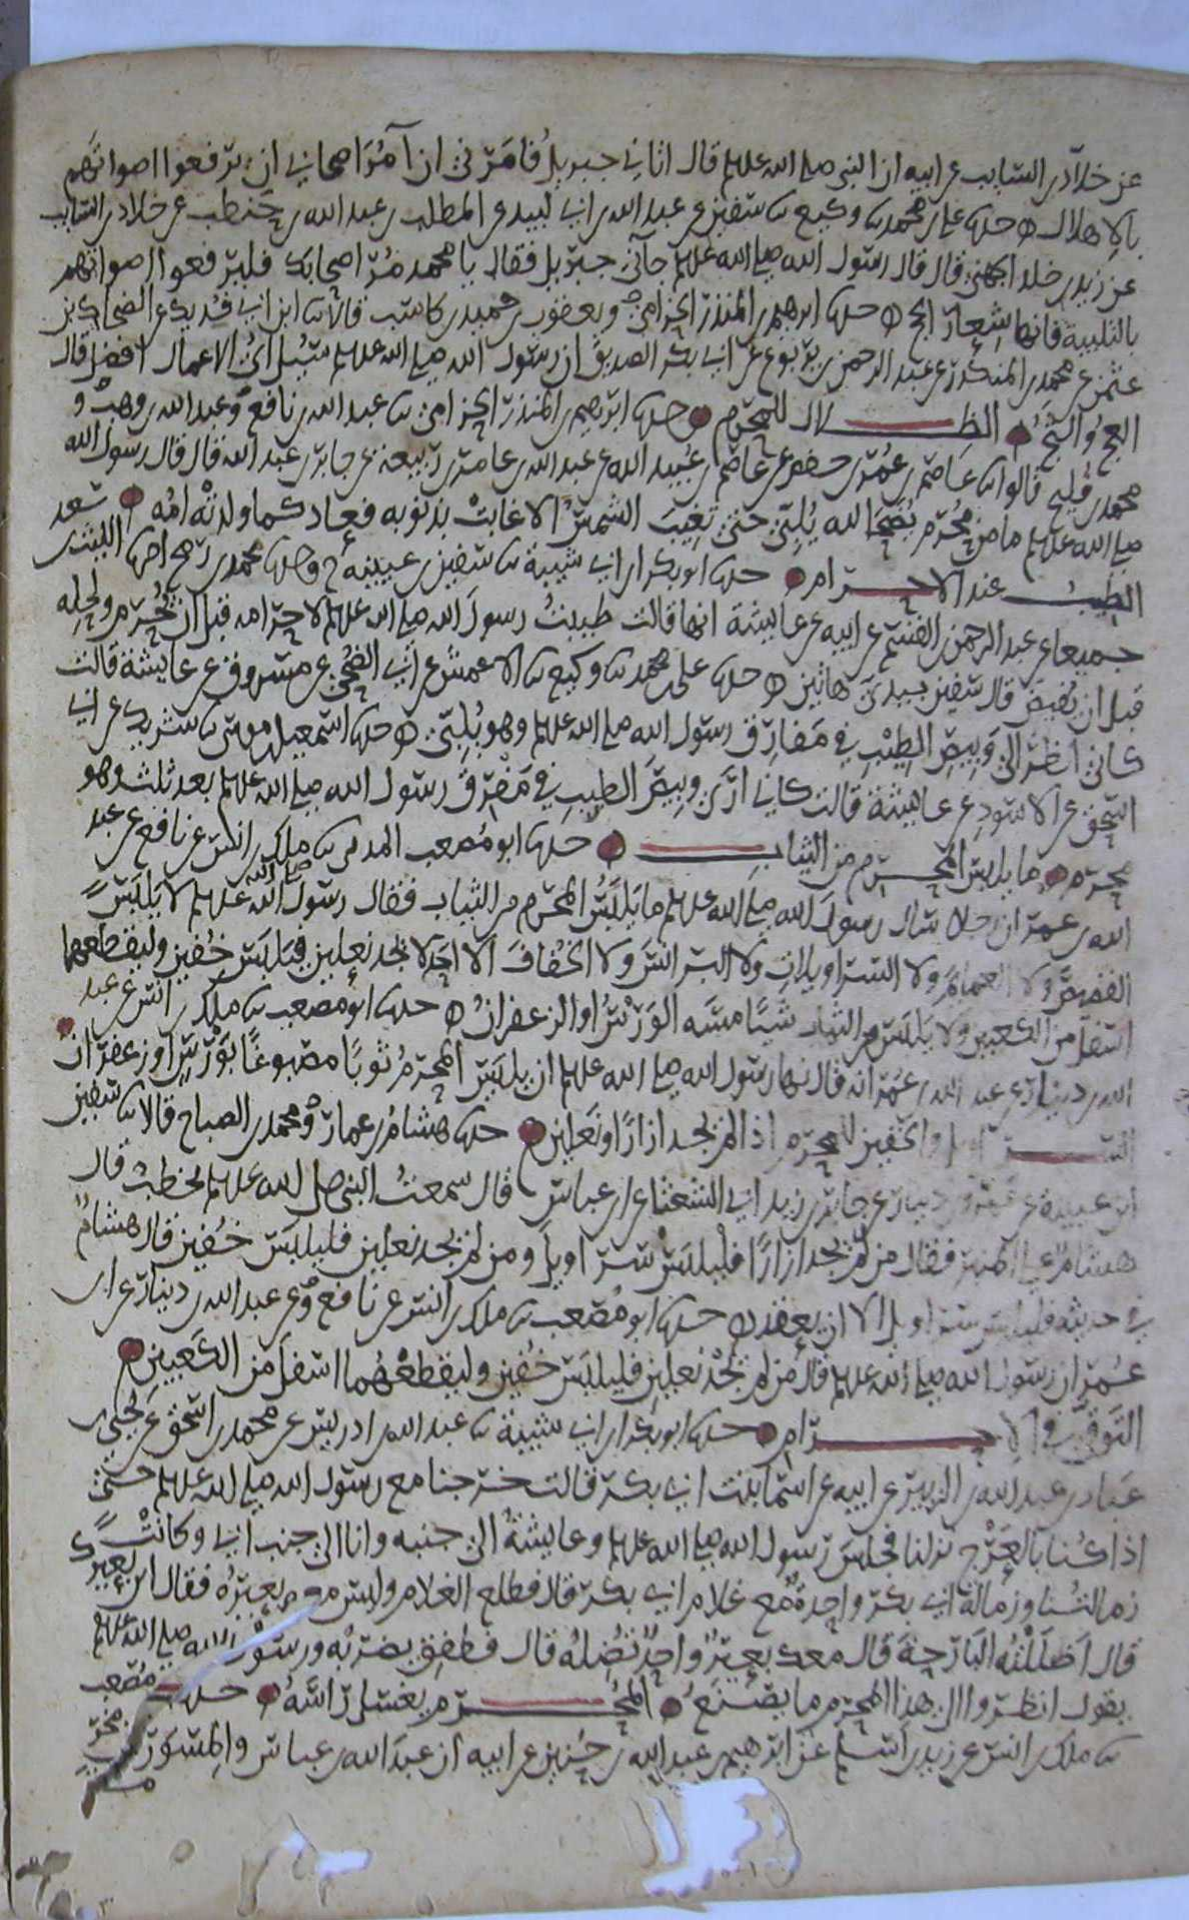 عن خلاد بن السايب عن ابيه ان النبي صلى الله عليه وسلم قال اتاني جبريل فامرني ان آمر اصحابي ان يرفعوا اصواتهم
بالاهلال ه حدثنا علي بن محمد ثنا وكيع ثنا سفين عن عبد الله بن ابي لبيد عن المطلب بن عبد الله بن حنطب عن خلاد بن السايب
عن زيد بن خلد الجهني قال قال رسول الله صلى الله عليه وسلم جاني جبريل فقال يا محمد مر اصحابك فليرفعوا اصواتهم
بالتلبية فانها شعار الحج ه حدثنا ابرهيم بن المنذر الحزامي ويعقوب بن حميد بن كاسب قالا ثنا ابن ابي فديك عن الضحاك بن
عثمن عن محمد بن المنكدر عن عبد الرحمن بن يربوع عن ابي بكر الصديق ان رسول الله صلى الله عليه وسلم سئل اي الاعمال افضل قال
العج والثج ه الظلال للمحرم ه حدثنا ابرهيم بن المنذر الحزامي ثنا عبد الله بن نافع وعبد الله بن وهب و
محمد بن فليح قالوا ثنا عاصم بن عمر بن حفص عن عاصم بن عبيد الله عن عبد الله بن عامر بن ربيعة عن جابر بن عبد الله قال قال رسول الله
صلى الله عليه وسلم ما من محرم يضحا لله يلبي حتى تغيب الشمس الا غابت بذنوبه فعاد كما ولدته امه ه
الطيب عند الاحرام ه حدثنا ابو بكر بن ابي شيبة ثنا سفين بن عيينة ح وحدثنا محمد بن رمح انا الليث بن سعد
جميعا عن عبد الرحمن بن القسم عن ابيه عن عايشة انها قالت طيبت رسول الله صلى الله عليه وسلم لاحرامه قبل ان يحرم ولحله
قبل ان يفيض قال سفين بيدي هاتين ه حدثنا علي بن محمد ثنا وكيع ثنا الاعمش عن ابي الضحى عن مسروق عن عايشة قالت
كاني انظر الى وبيص الطيب في مفارق رسول الله صلى الله عليه وسلم وهو يلبي ه حدثنا اسمعيل بن موسى ثنا شريك عن ابي
اسحق عن الاسود عن عايشة قالت كاني ارى وبيص الطيب في مفرق رسول الله صلى الله عليه وسلم بعد ثلث وهو
محرم ه ما يلبس المحرم من الثياب ه حدثنا ابو مصعب المدني ثنا ملك بن انس عن نافع عن عبد
الله بن عمر ان رجلا سال رسول الله صلى الله عليه وسلم ما يلبس المحرم من الثياب فقال رسول الله صلى الله عليه وسلم لا يلبس
القمص ولا العمايم ولا السراويلات ولا البرانس ولا الخفاف الا احد لا يجد نعلين فيلبس خفين وليقطعهما
اسفل من الكعبين ولا يلبس من الثياب شيئا مسه الورس او الزعفران ه حدثنا ابو مصعب ثنا ملك بن انس عن عبد
الله بن دينار عن عبد الله بن عمر انه قال نها رسول الله صلى الله عليه وسلم ان يلبس المحرم ثوبا مصبوغا بورس او زعفران ه
السراويل والخفين للمحرم اذا لم يجد ازارا او نعلين ه حدثنا هشام بن عمار ومحمد بن الصباح قالا ثنا سفين
ابن عيينة عن عمرو بن دينار عن جابر بن زيد ابي الشعثا عن ابن عباس قال سمعت النبي صلى الله عليه وسلم يخطب قال
هشام على المنبر فقال من لم يجد ازارا فليلبس سراويل ومن لم يجد نعلين فليلبس خفين قال هشام
في حديثه فليلبس سراويل الا ان يعقد ه حدثنا ابو مصعب ثنا ملك بن انس عن نافع وعن عبد الله بن دينار عن ابن
عمر ان رسول الله صلى الله عليه وسلم قال من لم يجد نعلين فليلبس خفين وليقطعهما اسفل من الكعبين ه
التوقي في الاحرام ه حدثنا ابو بكر بن ابي شيبة ثنا عبد الله بن ادريس عن محمد بن اسحق عن يحيى بن
عباد بن عبد الله بن الزبير عن ابيه عن اسما بنت ابي بكر قالت خرجنا مع رسول الله صلى الله عليه وسلم حتى
اذا كنا بالعرج نزلنا فجلس رسول الله صلى الله عليه وسلم وعايشة الى جنبه وانا الى جنب ابي وكانت
زمالتنا وزمالة ابي بكر واحدة مع غلام ابي بكر قال فطلع الغلام وليس معه بعيره فقال اين بعيرك
قال اضللته البارحة قال معك بعير واحد تضله قال فطفق يضربه ورسول الله صلى الله عليه وسلم
يقول انظروا الى هذا المحرم ما يصنع ه المحرم يغسل راسه ه حدثنا مصعب
ثنا ملك بن انس عن زيد بن اسلم عن ابرهيم بن عبد الله بن حنين عن ابيه ان عبد الله بن عباس والمسور بن مخرمة